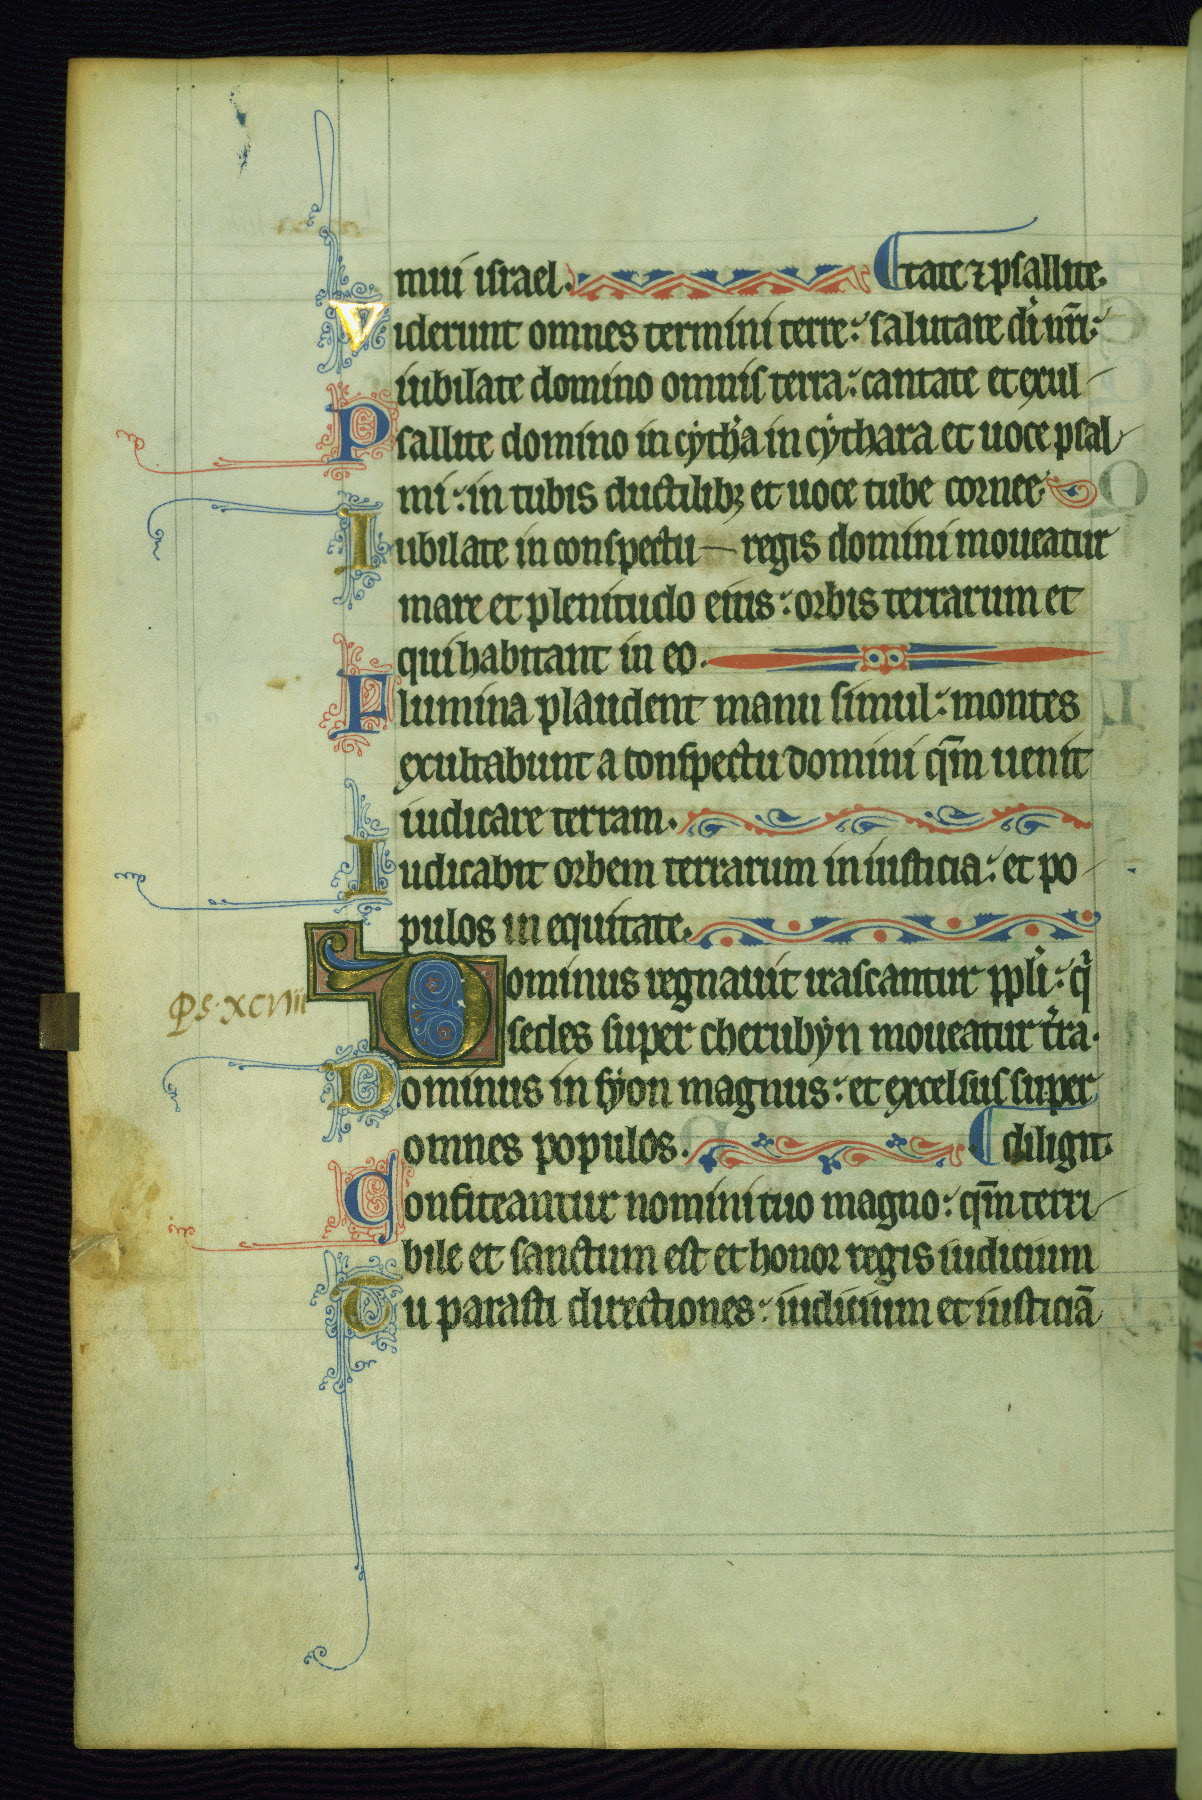 mui israel. tate ⁊ psallite.
Viderunt omnes termini terre: salutare dī nr̄i:
iubilate domino omnis terra: cantate et exul
Psallite domino in cyth̄a in cythara et uoce psal
mi: in tubis ductilibꝫ et uoce tube cornee.
Iubilate in conspectu regis domini moueatur
mare et plenitudo eius: orbis terrarum et
qui habitant in eo.
Flumina plaudent manu simul: montes
exultabunt a conspectu domini qm̄ uenit
iudicare terram.
Iudicabit orbem terrarum in iusticia: et po
pulos in equitate.
Dominus regnauit irascantur ppl̄i: q̄
Ps. XCVIII
sedes super cherubyn moueatur t̄ra.
Dominus in syon magnus: et excelsus super
omnes populos. diligit.
Confiteantur nomini tuo magno: qm̄ terri
bile et sanctum est et honor regis iudicium
Tu parasti directiones: iudicium et iusticiā